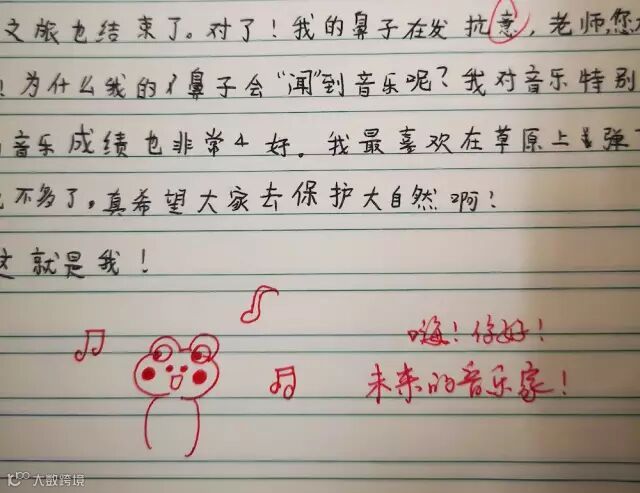 文旅也结束了。对了！我的鼻子在发抗意，老师，您
！为什么我的鼻子会“闻”到音乐呢？我对音乐特别
音乐成绩也非常好。我最喜欢在草原上弹
不多了。真希望大家去保护大自然啊！
这就是我！
嗨！你好！
未来的音乐家！
大数跨境